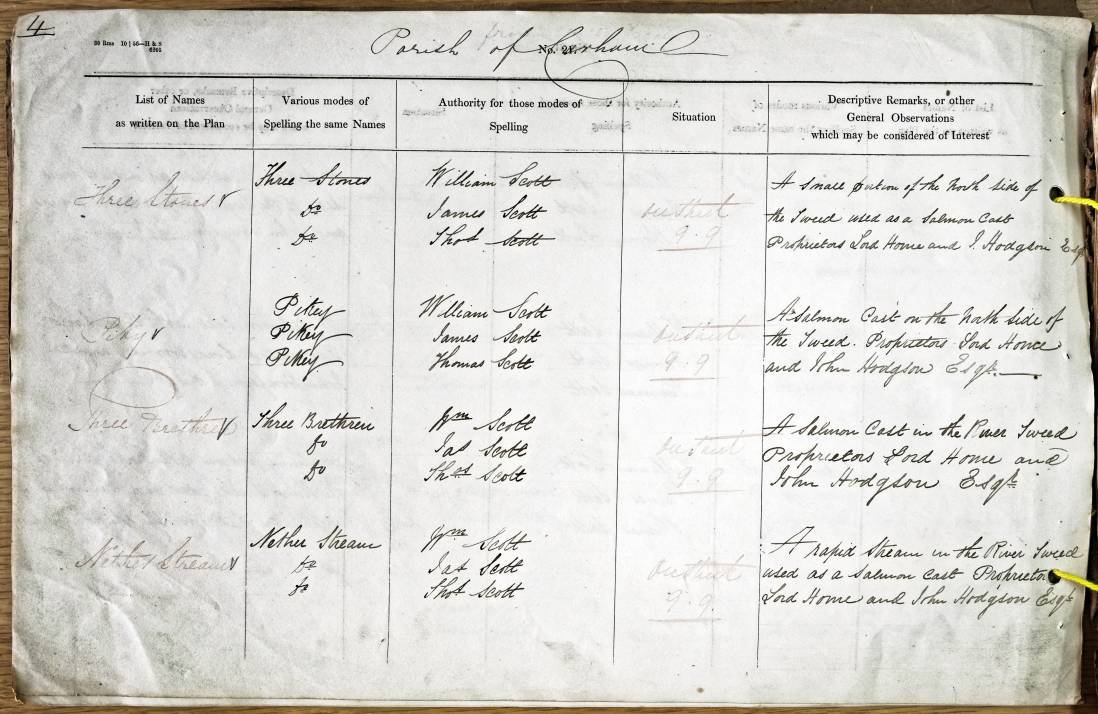 4
Parish of Carham
No. 21.
List of Names
as written on the Plan
Various modes of
Spelling the same Names
Authority for those modes of
Spelling
Situation
Descriptive Remarks, or other
General Observations
which may be considered of Interest
Three Stones
Three Stones
Do
Do
William Scott
James Scott
Thos Scott
9.9
A small portion of the North side of
the Tweed used as a Salmon Cast
Proprietors Lord Home and J. Hodgson Esqr
Pikey
Pikey
Pikey
Pikey
William Scott
James Scott
Thomas Scott
9.9
A Salmon Cast on the North side of
the Tweed. Proprietors Lord Home
and John Hodgson Esqr.
Three Brethren
Three Brethren
Do
Do
Wm Scott
Jas Scott
Thos Scott
9.9
A Salmon Cast in the River Tweed
Proprietors Lord Home and
John Hodgson Esqr.
Nether Stream
Nether Stream
Do
Do
Wm Scott
Jas Scott
Thos Scott
9.9
A rapid Stream in the River Tweed
used as a Salmon Cast Proprietors
Lord Home and John Hodgson Esqr